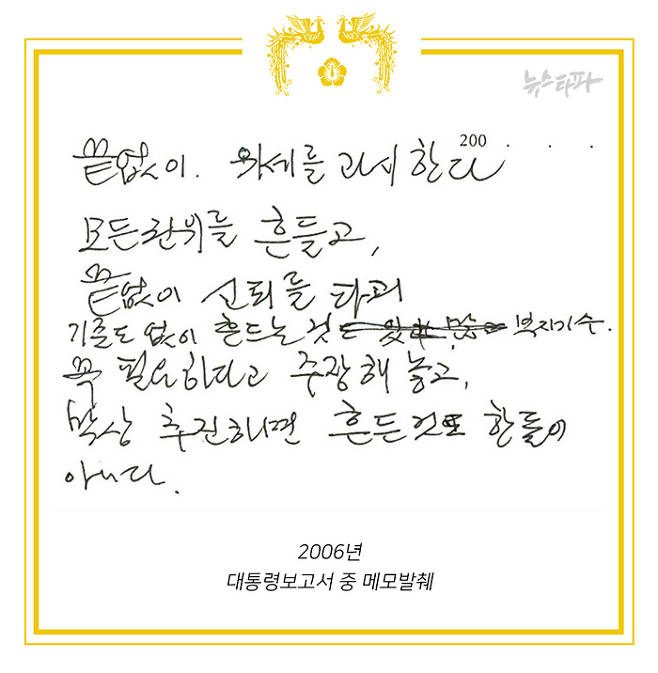 뉴스타파
200 . . .
끝없이. 위세를 과시한다
모든권위를 흔들고,
끝없이 신뢰를 파괴
기준도 없이 흔드는 것 부지기수.
꼭 필요하다고 주장해 놓고,
막상 추진하면 흔든것도 한둘이
아니다.
2006년
대통령보고서 중 메모발췌